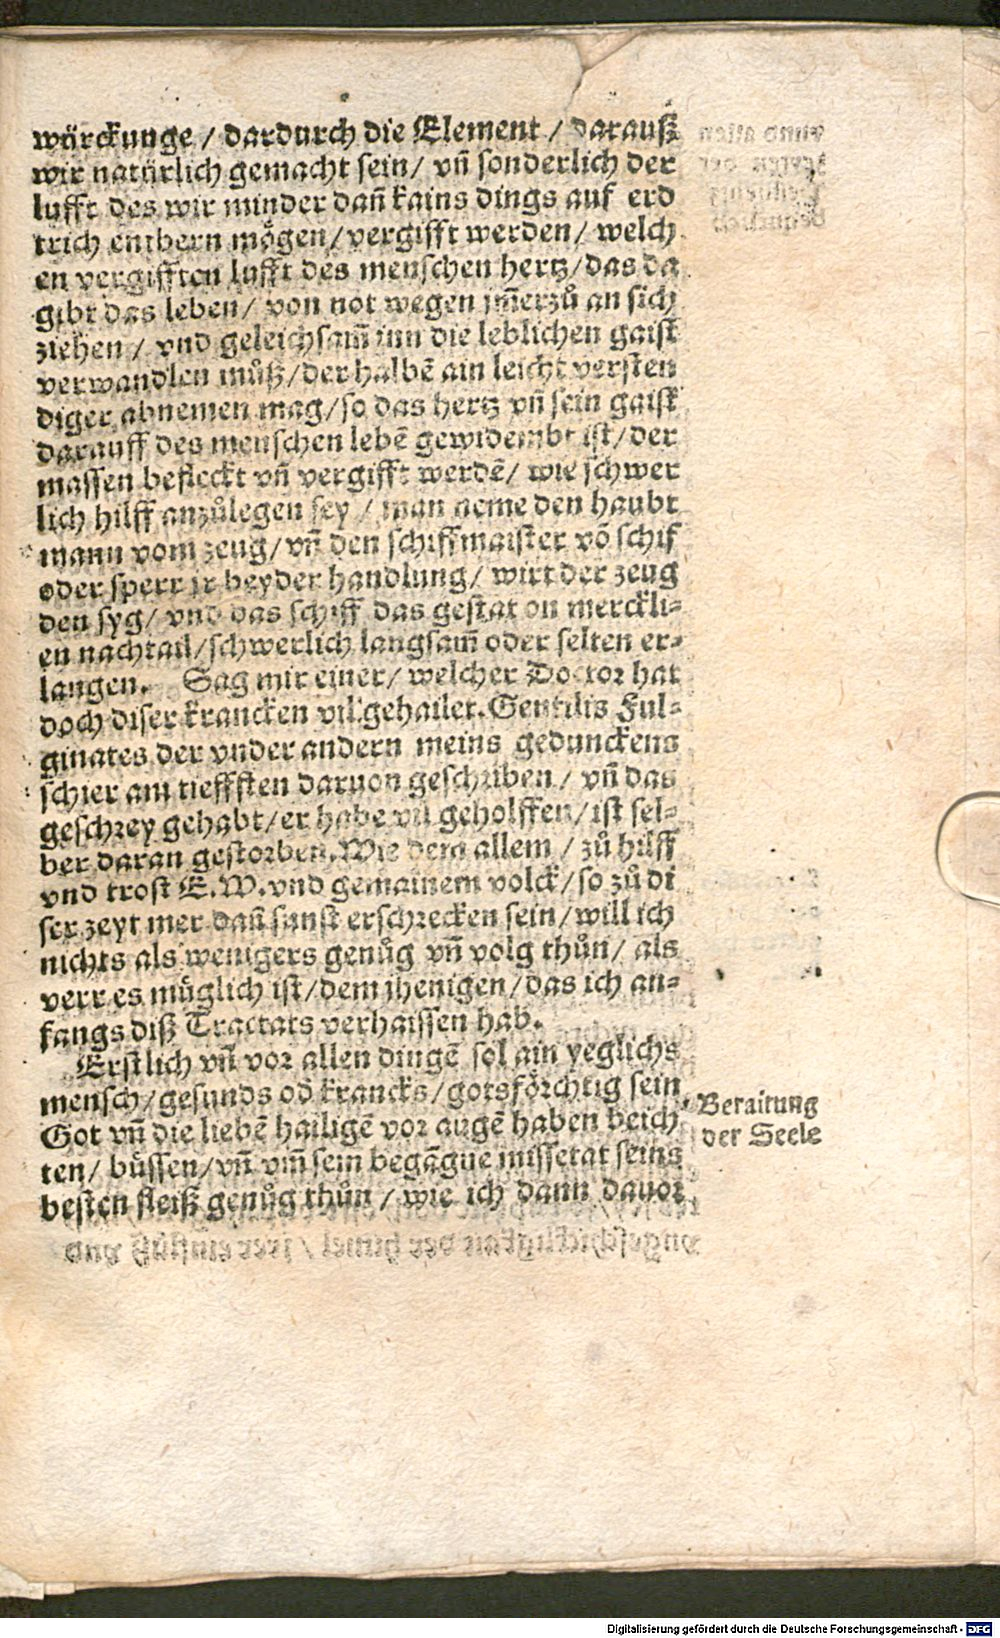 würckunge / dardurch die Element / darauß
wir natürlich gemacht sein / vn̄ sonderlich der
lufft des wir minder dan̄ kains dings auf erd
trich enthern mögen / vergifft werden / welch
en vergifften lufft des menschen hertz / das da
gibt das leben / von not wegen jm̄erzů an sich
ziehen / vnd geleichsam̄ inn die leblichen gaist
verwandlen můß / der halbē ain leicht versten
diger abnemen mag / so das hertz vn̄ sein gaist
darauff des menschen lebē gewidembt ist / der
massen befleckt vn̄ vergifft werdē / wie schwer
lich hilff anzůlegen sey / man neme den haubt
mann vom zeug / vn̄ den schiffmaister vō schif
oder sperr jr beyder handlung / wirt der zeug
den syg / vnd das schiff das gestat on merckli=
en nachtail / schwerlich langsam̄ oder selten er=
langen. Sag mir einer / welcher Doctor hat
doch diser krancken vil gehailet. Gentilis Ful=
ginates der vnder andern meins gedunckens
schier am tieffsten daruon geschriben / vn̄ das
geschrey gehabt / er habe vil geholffen / ist sel=
ber daran gestorben. Wie dem allem / zů hilff
vnd trost E. W. vnd gemainem volck / so zů di
ser zeyt mer dan̄ sunst erschrecken sein / will ich
nichts als wenigers genůg vn̄ volg thůn / als
verr es müglich ist / dem jhenigen / das ich an=
fangs diß Tractats verhaissen hab.
Erstlich vn̄ vor allen dingē sol ain yeglichs
mensch / gesunds od̄ krancks / gotsförchtig sein
Got vn̄ die liebē hailigē vor augē haben beich
ten / büssen / vn̄ vm̄ sein begāgne missetat seins
besten fleiß genůg thůn / wie ich dann dauor
Beraitung
der Seele
Digitalisierung gefördert durch die Deutsche Forschungsgemeinschaft - DFG